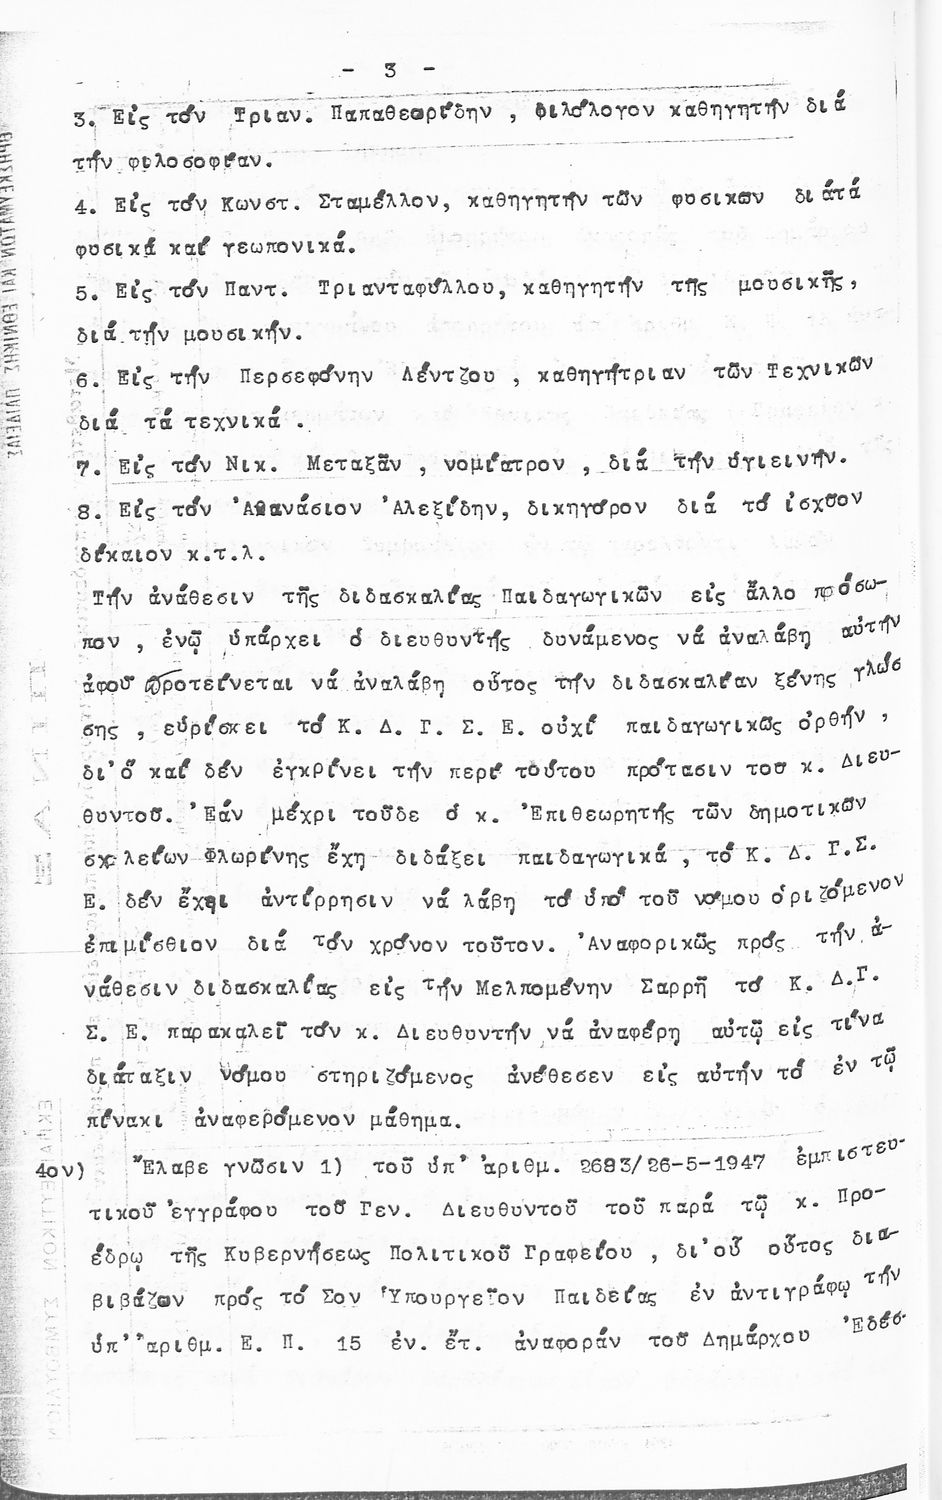 - 3 -
3. Εἰς τόν Τριαν. Παπαθεωρίδην , φιλόλογον καθηγητήν διά
τήν φιλοσοφίαν.
4. Εἰς τόν Κωνστ. Σταμέλλον, καθηγητήν τῶν φυσικῶν διάτά
φυσικά καί γεωπονικά.
5. Εἰς τόν Παντ. Τριανταφύλλου, καθηγητήν τῆς μουσικῆς,
διά τήν μουσικήν.
6. Εἰς τήν Περσεφόνην Λέντζου , καθηγήτριαν τῶν Τεχνικῶν
διά τά τεχνικά .
7. Εἰς τόν Νικ. Μεταξᾶν , νομίατρον , διά τήν ὑγιεινήν.
8. Εἰς τόν 'Αθανάσιον 'Αλεξίδην, δικηγόρον διά τό ἰσχῦον
δίκαιον κ.τ.λ.
Τήν ἀνάθεσιν τῆς διδασκαλίας Παιδαγωγικῶν εἰς ἄλλο πρόσω-
πον , ἐνῷ ὑπάρχει ὁ διευθυντής δυνάμενος νά ἀναλάβῃ αὐτήν
ἀφοῦ προτείνεται νά ἀναλάβῃ οὗτος τήν διδασκαλίαν ξένης γλώσ
σης , εὑρίσκει τό Κ. Δ. Γ. Σ. Ε. οὐχί παιδαγωγικῶς ὀρθήν ,
δι'ὅ καί δέν ἐγκρίνει τήν περί τούτου πρότασιν του κ. Διευ-
θυντοῦ. 'Εάν μέχρι τοῦδε ὁ κ. 'Επιθεωρητής τῶν δημοτικῶν
σχολείων Φλωρίνης ἔχῃ διδάξει παιδαγωγικά , τό Κ. Δ. Γ.Σ.
Ε. δέν ἔχει ἀντίρρησιν νά λάβῃ τό ὑπό τοῦ νόμου ὁριζόμενον
ἐπιμίσθιον διά τόν χρόνον τοῦτον. 'Αναφορικῶς πρός τήν ἀ-
νάθεσιν διδασκαλίας εἰς τήν Μελπομένην Σαρρῆ τό Κ. Δ.Γ.
Σ. Ε. παρακαλεῖ τόν κ. Διευθυντήν νά ἀναφέρῃ αὐτῷ εἰς τίνα
διάταξιν νόμου στηριζόμενος ἀνέθεσεν εἰς αὐτήν τό ἐν τῷ
πίνακι ἀναφερόμενον μάθημα.
4ον) "Ελαβε γνῶσιν 1) τοῦ ὑπ' ἀριθμ. 2683/26-5-1947 ἐμπιστευ-
τικοῦ ἐγγράφου τοῦ Γεν. Διευθυντοῦ τοῦ παρά τῷ κ. Προ-
έδρῳ τῆς Κυβερνήσεως Πολιτικοῦ Γραφείου , δι'οὗ οὗτος δια-
βιβάζων πρός τό Σον 'Υπουργεῖον Παιδείας ἐν ἀντιγράφῳ τήν
ὑπ' ἀριθμ. Ε. Π. 15 ἐν. ἔτ. ἀναφοράν τοῦ Δημάρχου 'Εδέσ-